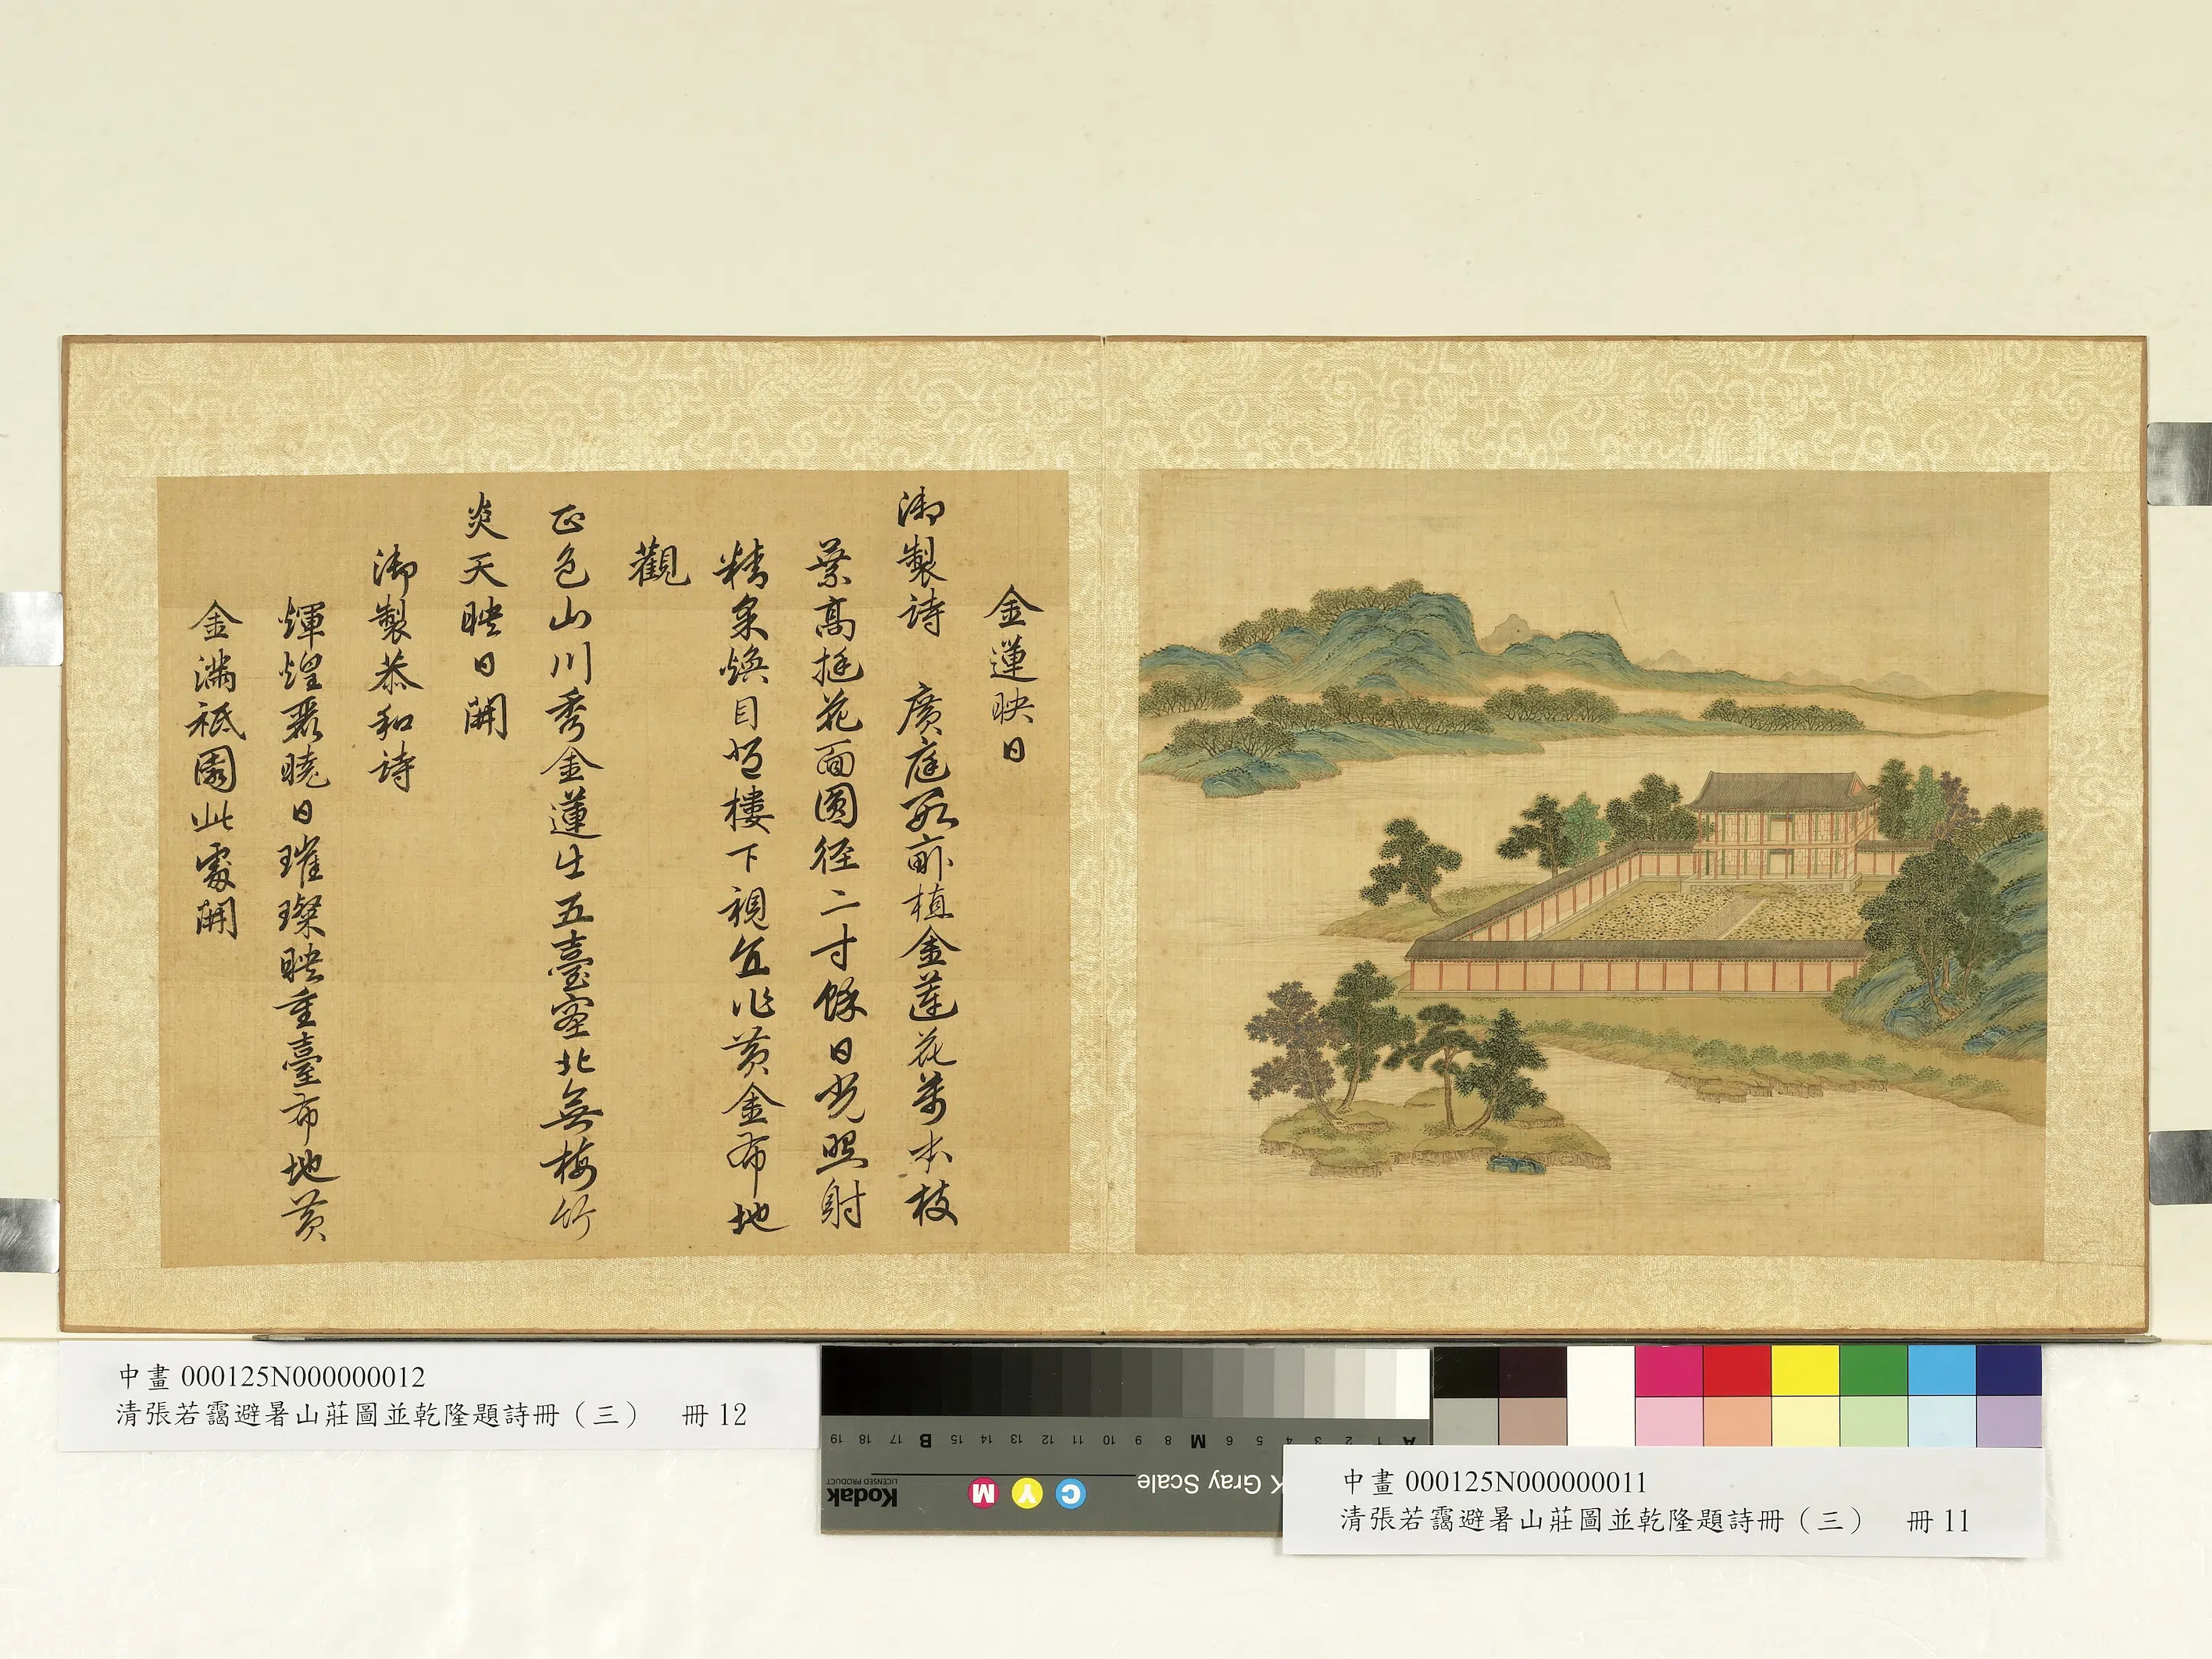 金蓮映日
御製詩　廣庭數畝植金蓮花萬本枝
葉高挺花面圓徑二寸餘日光照射
精彩煥目登樓下視直作黃金布地
觀
正色山川秀金蓮出五臺塞北無梅竹
炎天映日開
御製恭和詩
輝煌霞曉日璀璨映重臺布地黃
金滿祗園此處開
中畫 000125N000000012
清張若靄避暑山莊圖並乾隆題詩冊（三）　冊 12
19 18 17 B 15 14 13 12 11 10 9 8 M 6 5 4 3 2 1 A
Kodak
LICENSED PRODUCT
C Y M
K Gray Scale
中畫 000125N000000011
清張若靄避暑山莊圖並乾隆題詩冊（三）　冊 11